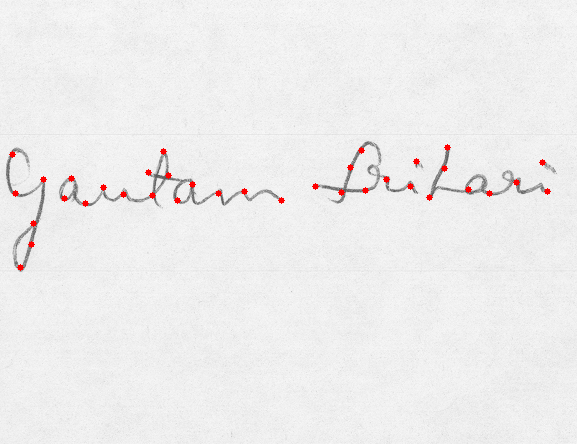 Gautam Bihari